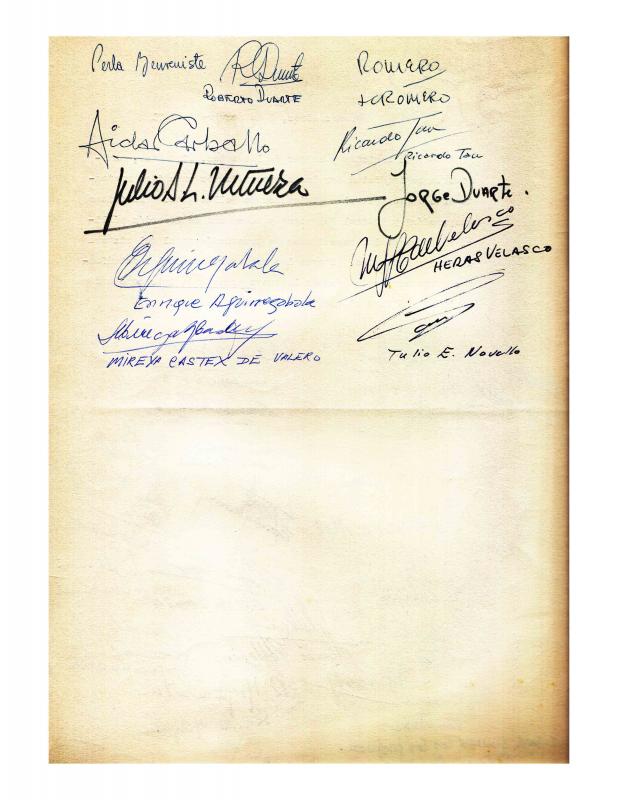 Perla Benveniste
R Duarte
ROBERTO DUARTE
ROMERO
ROMERO
Aida Carballo
Ricardo Tau
Ricardo Tau
Julio A L.
JORGE DUARTE.
HERAS VELASCO
Enrique Aguirrezabala
MIREYA CASTEX DE VALERO
Tulio E. Novello